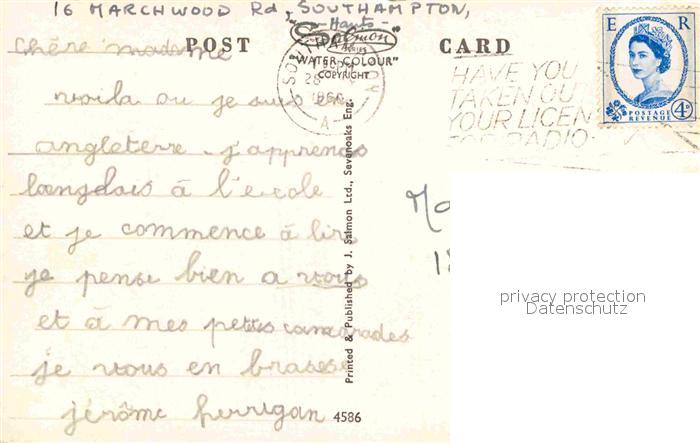 16 MARCHWOOD Rd, SOUTHAMPTON,
- Hants -
POST CARD
Salmon
SERIES
"WATER COLOUR"
COPYRIGHT
Chère madame
voila ou je suis en
angleterre - j'apprends
langlais à l'école
et je commence à lire
je pense bien a vous
et à mes petits camarades
je vous en brasse
jérôme perrigan
Printed & Published by J. Salmon Ltd., Sevenoaks Eng.
4586
HAVE YOU
TAKEN OUT
YOUR LICEN
FOR RADIO
E R
POSTAGE
REVENUE
4D
privacy protection
Datenschutz